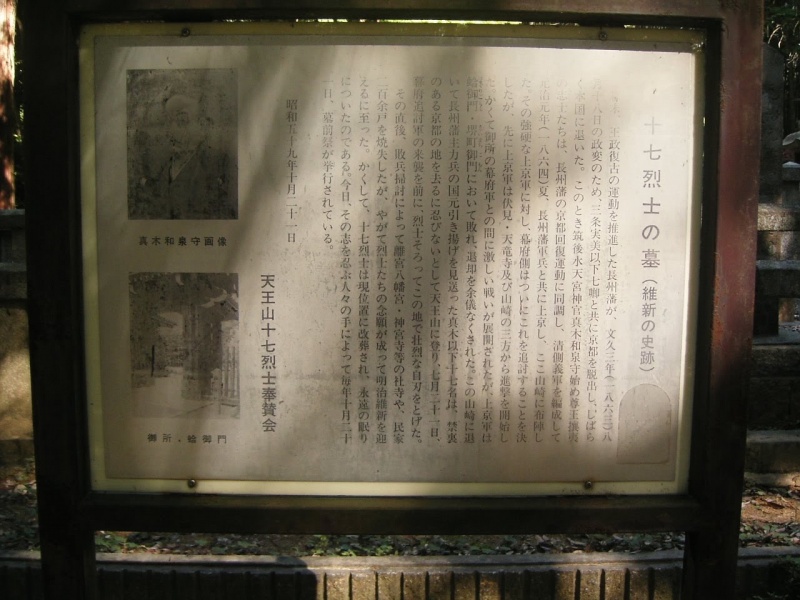 十七烈士の墓（維新の史跡）
王政復古の運動を推進した長州藩が、文久三年（一八六三）八
月十八日の政変のため、三条実美以下七卿と共に京都を脱出し、しばら
く本国に退いた。このとき筑後水天宮神官真木和泉守始め尊王攘夷
の志士たちは、長州藩の京都回復運動に同調し、清側義軍を編成して
元治元年（一八六四）夏、長州藩軍兵と共に上京し、ここ山崎に布陣し
た。その強硬な上京軍に対し、幕府側はついにこれを追討することを決
したが、先に上京軍は伏見・天竜寺及び山崎の三方から進撃を開始し
た。かくて御所の幕府軍との間に激しい戦いが展開されたが、上京軍は
蛤御門・堺町御門において敗れ、退却を余儀なくされた。この山崎に退
いて長州藩主力兵の国元引き揚げを見送った真木以下十七名は、禁裏
のある京都の地を去るに忍びないとして天王山に登り、七月二十一日、
幕府追討軍の来襲を前に烈士そろってこの地で壮烈な自刃をとげた。
その直後、敗兵掃討によって離宮八幡宮・神宮寺等の社寺や、民家
二百余戸を焼失したが、やがて烈士たちの念願が成って明治維新を迎
えるに至った。かくして、十七烈士は現位置に改葬され、永遠の眠り
についたのである。今日、その志を忍ぶ人々の手によって毎年十月二十
一日、墓前祭が挙行されている。
昭和五十九年十月二十一日
天王山十七烈士奉賛会
真木和泉守画像
御所・蛤御門